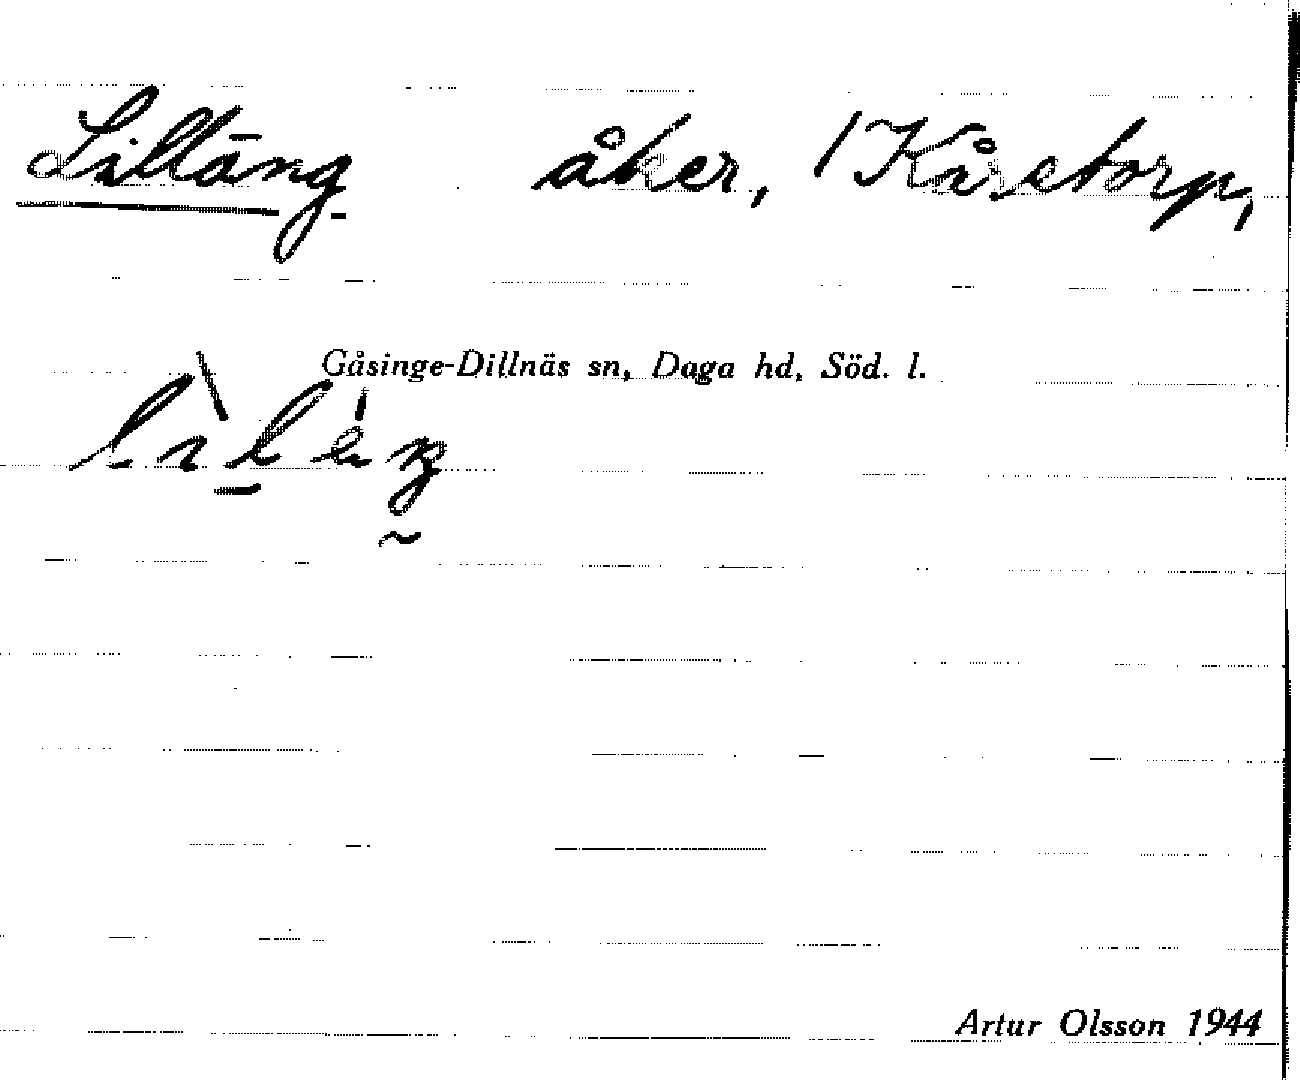 Liltäng åker, / Kåretorp,
Gåsinge-Dillnäs sn, Daga hd, Söd. l.
Artur Olsson 1944